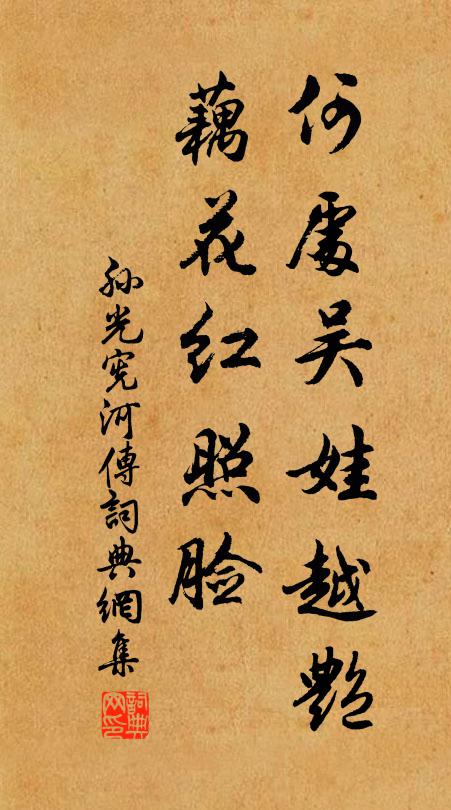 何處吴娃越艷
藕花紅照脸
孙光宪河傳詞典網集
詞典網印